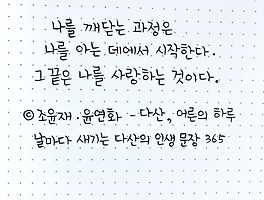 나를 깨닫는 과정은
나를 아는 데에서 시작한다.
그 끝은 나를 사랑하는 것이다.
© 조윤제·윤연화 - 다산, 어른의 하루
날마다 새기는 다산의 인생 문장 365